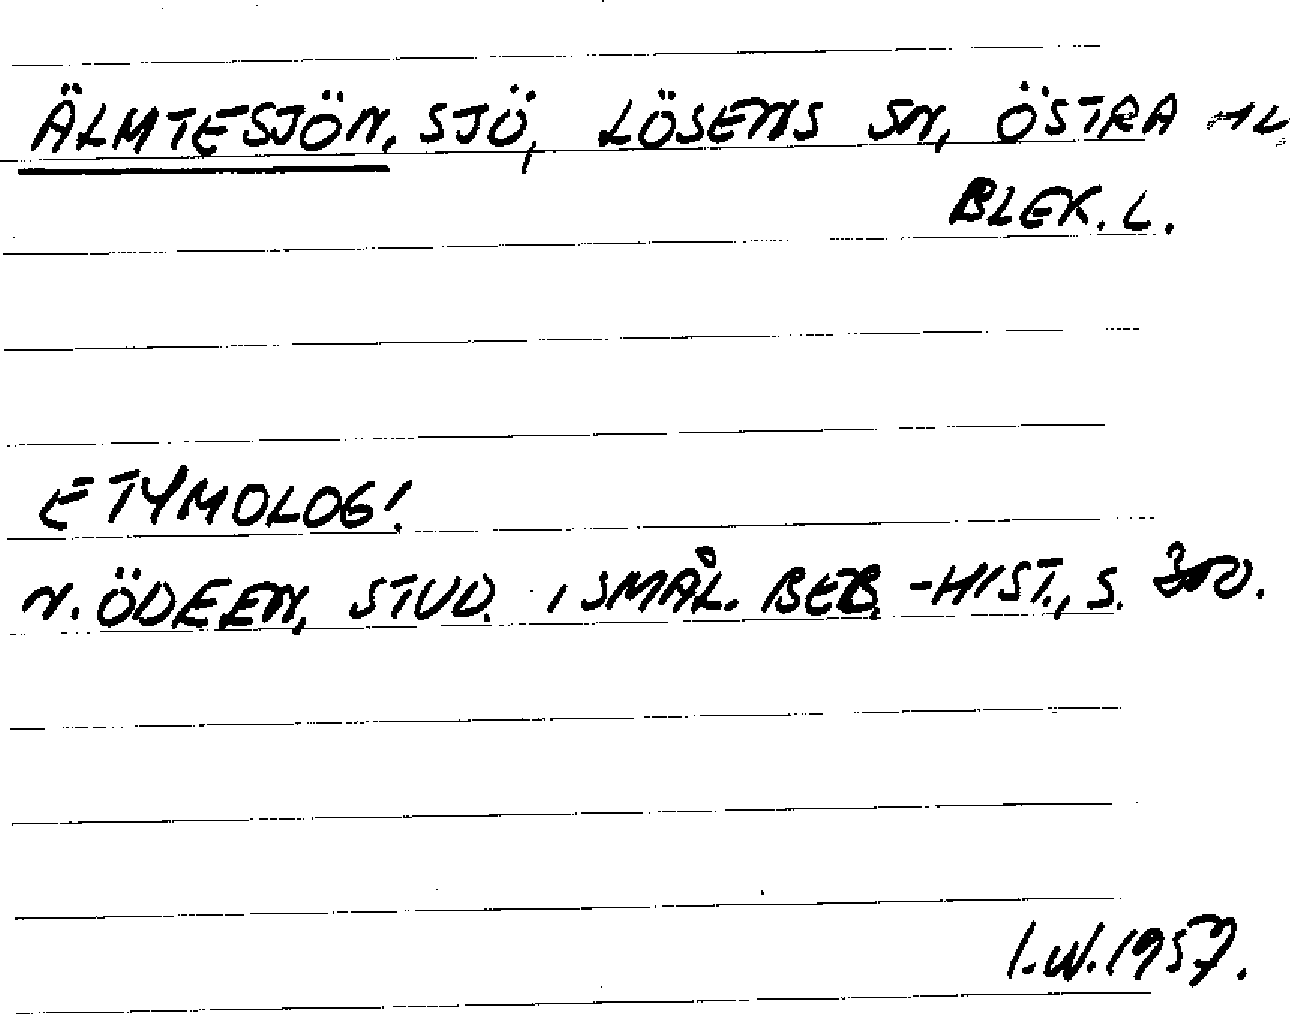 ÄLMTESJÖN. SJÖ, LÖSENS SN, ÖSTRA HD,
BLEK. L.
ETYMOLOGI.
N. ÖDEEN, STUD. I SMÅL. BEB.-HIST., S. 300.
I.W. 1957.